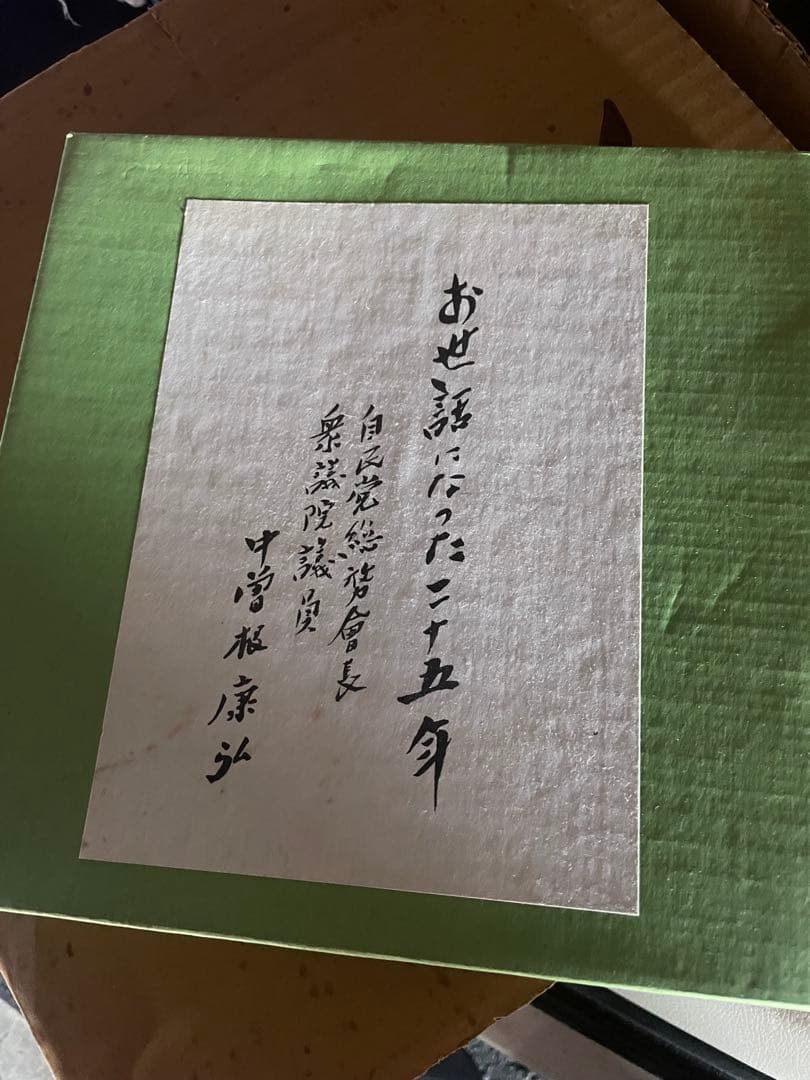 お世話になった二十五年
自民党総務會長
衆議院議員
中曽根康弘